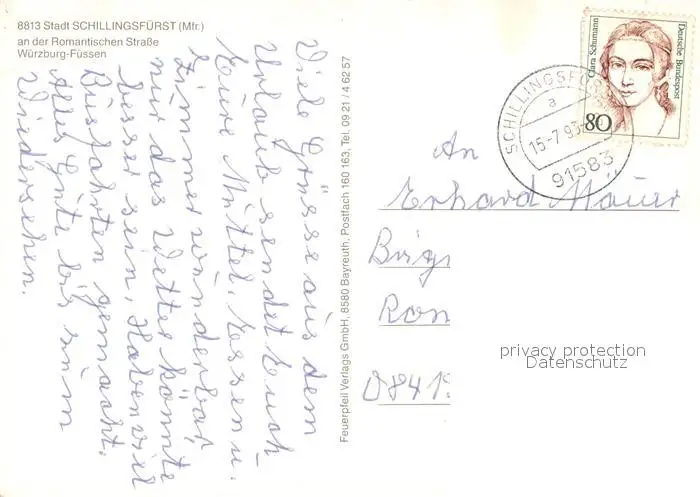 8813 Stadt SCHILLINGSFÜRST (Mfr.)
an der Romantischen Straße
Würzburg-Füssen
Viele Grüsse aus dem
Urlaub sendet Euch
Eure Mittel. Essen u.
Zimmer wunderbar,
nur das Wetter könnte
besser sein, Haben viel
Busfahrten gemacht.
Alles Gute bis zum
Wiedersehen.
Feuerpfeil Verlags GmbH, 8580 Bayreuth, Postfach 160 163, Tel. 09 21 / 4 62 57
Clara Schumann
Deutsche Bundespost
80
SCHILLINGSFÜ
a
15.-7.93
91583
An
Erhard Mäuer
Bürg
Ron
D841
privacy protection
Datenschutz